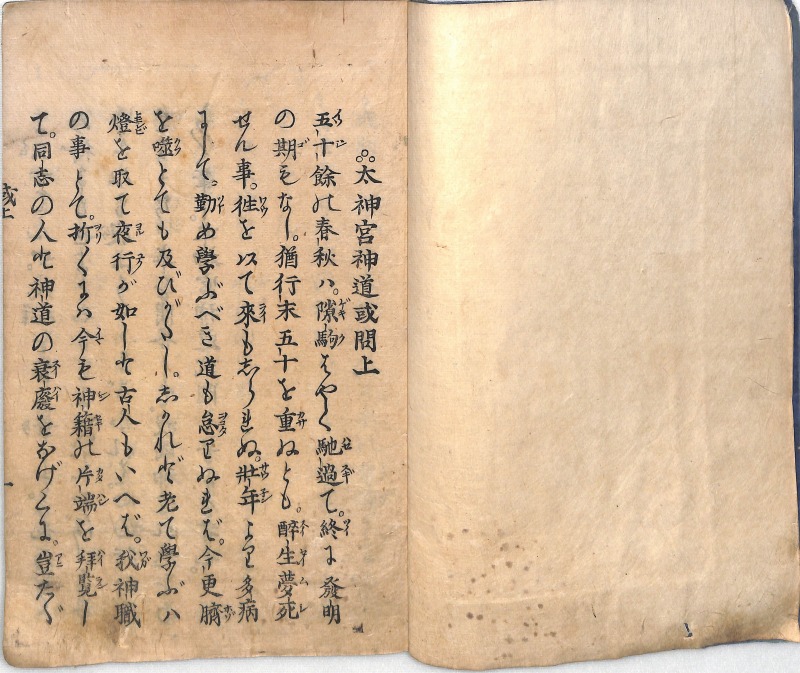 太神宮神道或問上
五十餘の春秋ハ。隙駒はやく馳過て。終に發明
の期もなし。猶行末五十を重ぬとも。醉生夢死
せん事。徃を以て來もしられぬ。壯年より多病
にして。勤め學ぶべき道も怠りぬれば。今更臍
を噬とても及びがたし。しかれど老て學ぶハ
燈を取て夜行が如しと古人もいへば。我神職
の事とて。折〱にハ今も神籍の片端を拜覧し
て。同志の人と神道の衰廢をなげくに。豈たゞ
或上
一